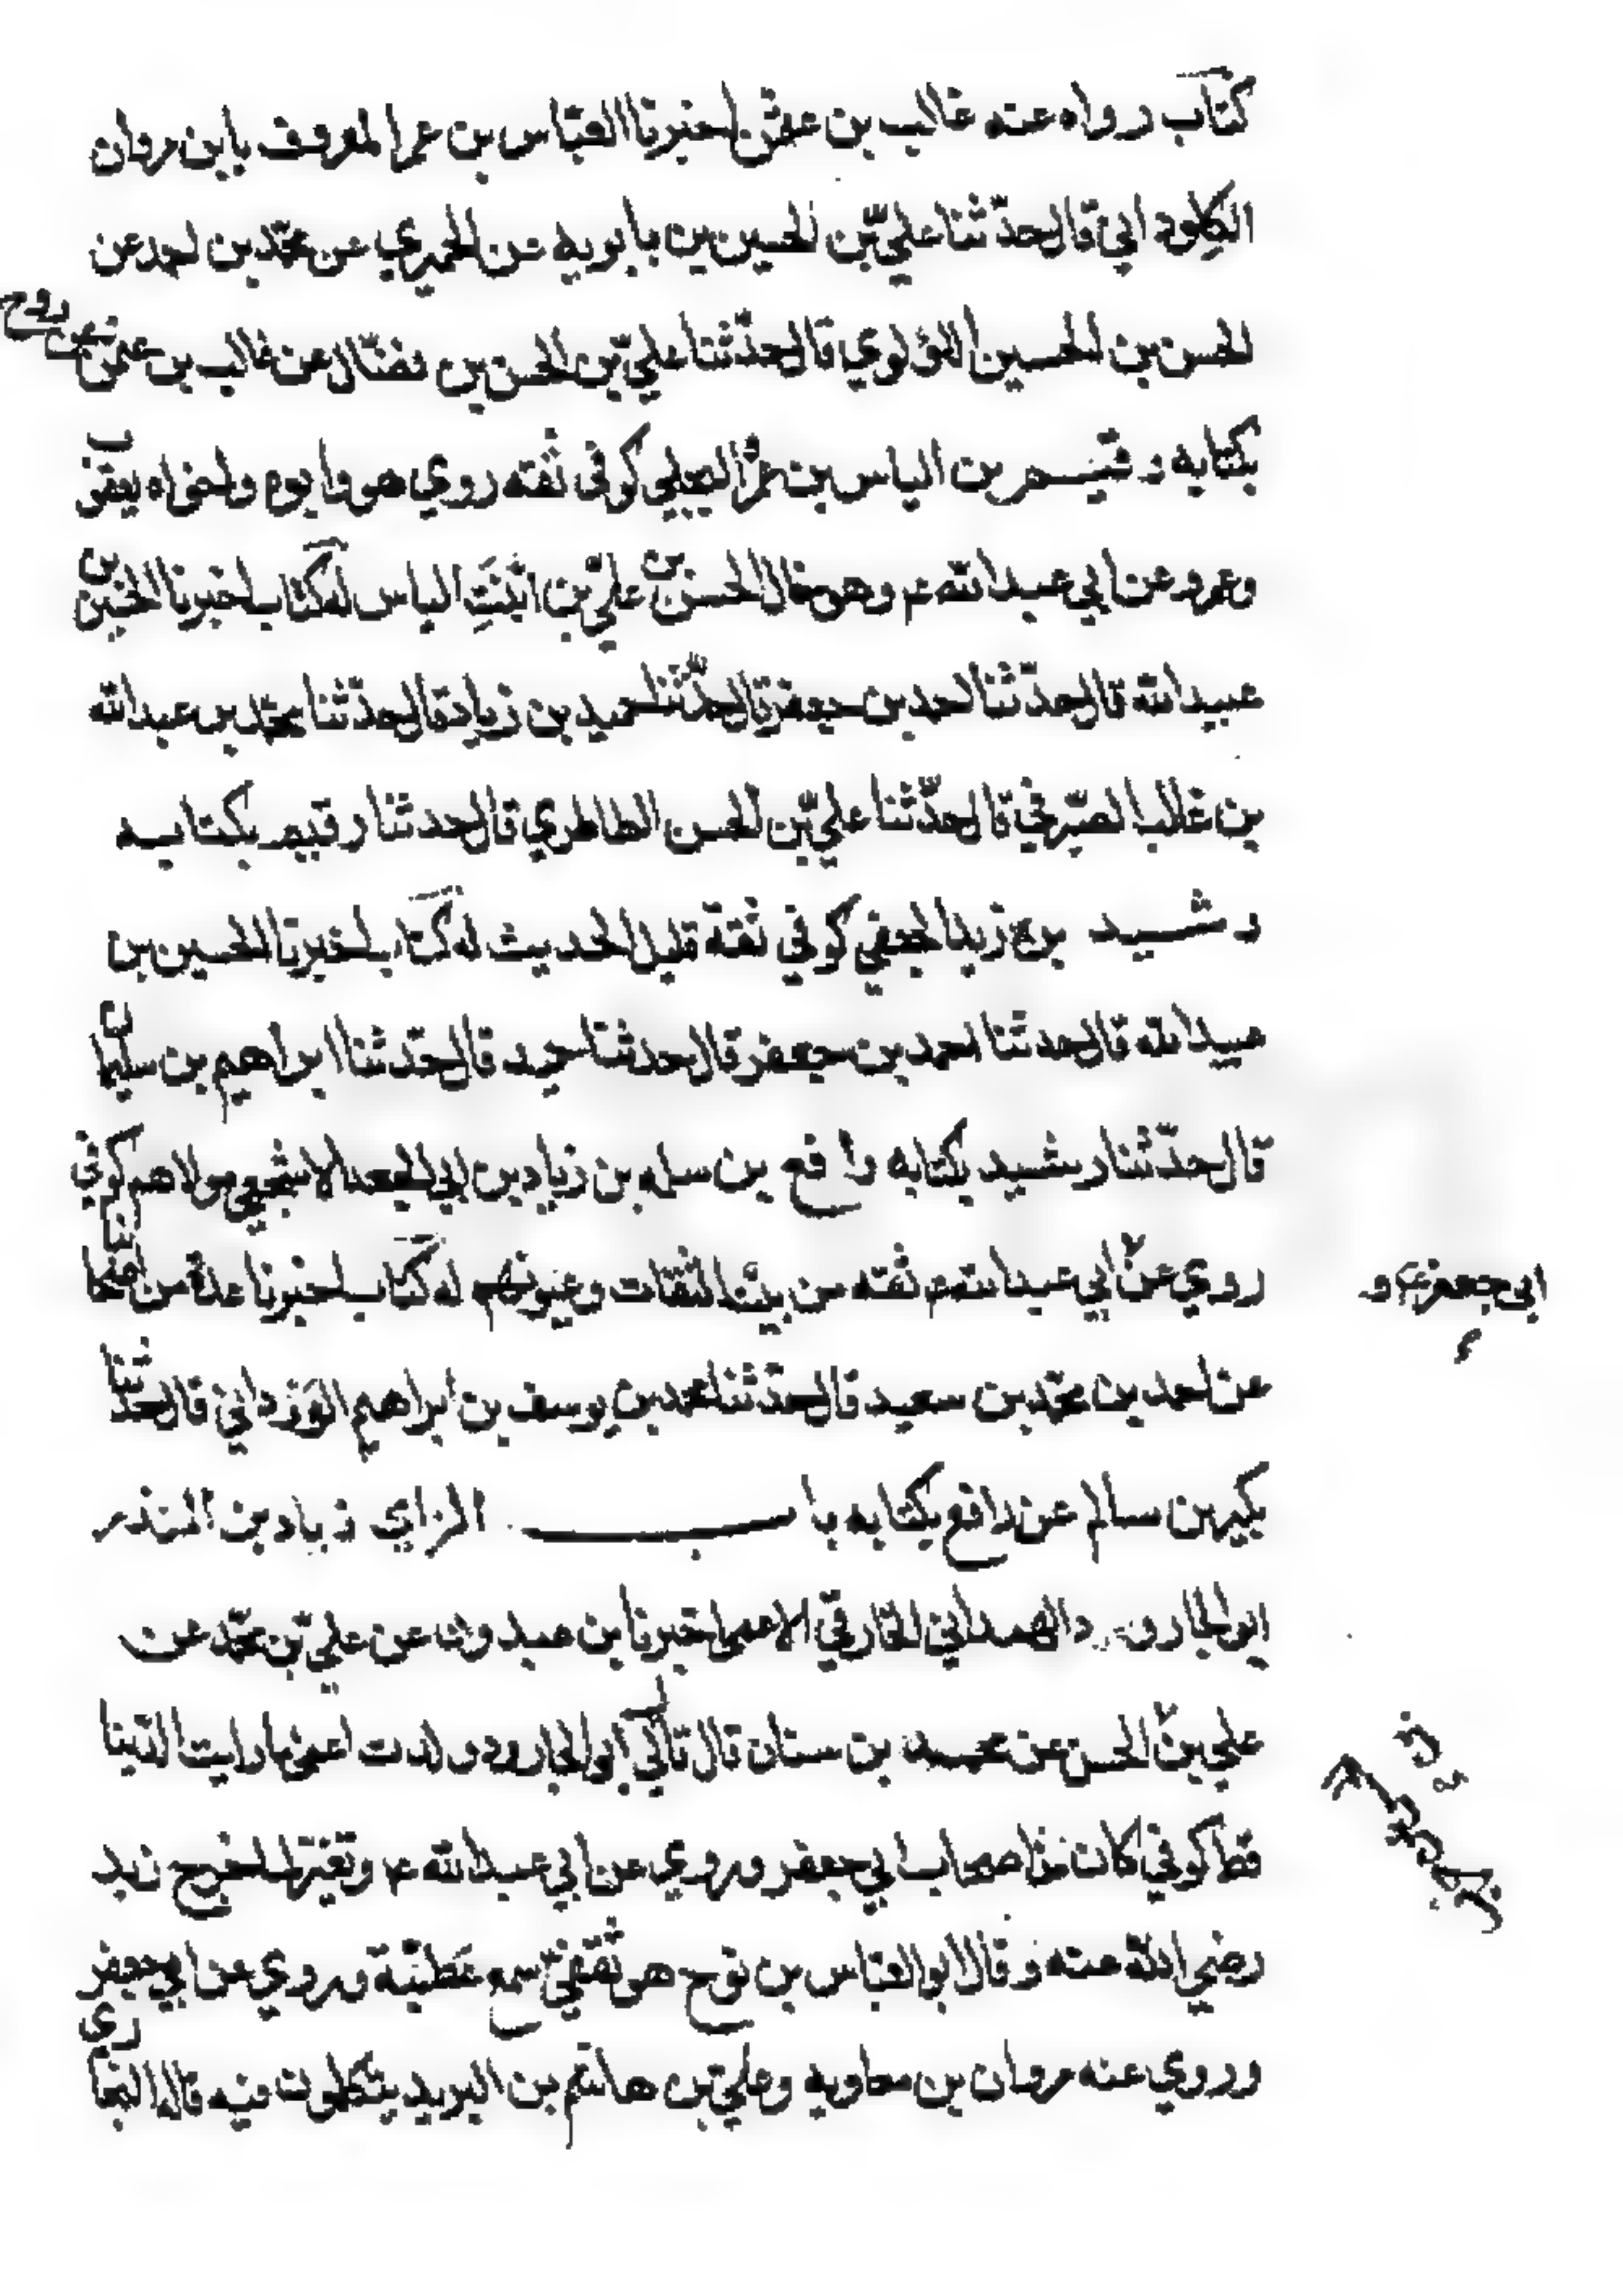 كتاب رواه عنه غالب بن عثمن اخبرنا العباس بن عمر المعروف بابن مروان
الكلوذاني قال حدثنا علي بن الحسين بن بابويه عن الحميري عن محمد بن احمد عن
الحسن بن الحسين اللؤلوي قال حدثنا علي بن الحسن بن فضال عن غالب بن عثمن عن روح
بكتابه رقيم بن الياس بن عمرو البجلي كوفي ثقه روي هو وابوه واخواه يعقوب
وعمرو عن ابي عبدالله ع وهو خال الحسن بن علي بن ابنت الياس له كتاب اخبرنا الحسين بن
عبيدالله قال حدثنا احمد بن جعفر قال حدثنا حميد بن زياد قال حدثنا محمد بن عبدالله
بن غالب الصيرفي قال حدثنا علي بن الحسن الطاطري قال حدثنا رقيم بكتابه
رشيد بن زيد الجعفي كوفي ثقة قليل الحديث له كتاب اخبرنا الحسين بن
عبيدالله قال حدثنا احمد بن جعفر قال حدثنا حميد قال حدثنا ابراهيم بن سليمان
قال حدثنا رشيد بكتابه رافع بن سلمه بن زياد بن ابي الجعد الاشجعي مولاهم كوفي
روي عن ابي عبدالله ع ثقه من بيت الثقات وعيونهم له كتاب اخبرنا عدة من اصحابنا
ابي جعفر ع و
عن احمد بن محمد بن سعيد قال حدثنا محمد بن يوسف بن ابراهيم الورداني قال حدثنا
بكير بن سالم عن رافع بكتابه باب الزاي زياد بن المنذر
ابوالجارود الهمداني الخارقي الاعمى اخبرنا ابن عبدون عن علي بن محمد عن
علي بن الحسن عن محمد بن سنان قال قال لي ابوالجارود ولدت اعمى ما رايت الدنيا
قط كوفي كان من اصحاب ابي جعفر وروي عن ابي عبدالله ع وتغير لما خرج زيد
رضي الله عنه وقال ابوالعباس بن نوح هو ثقفي سمع عطية وروي عن ابي جعفر
وروي عنه مروان بن معاويه وعلي بن هاشم بن البريد يتكلمون فيه قاله البخاري